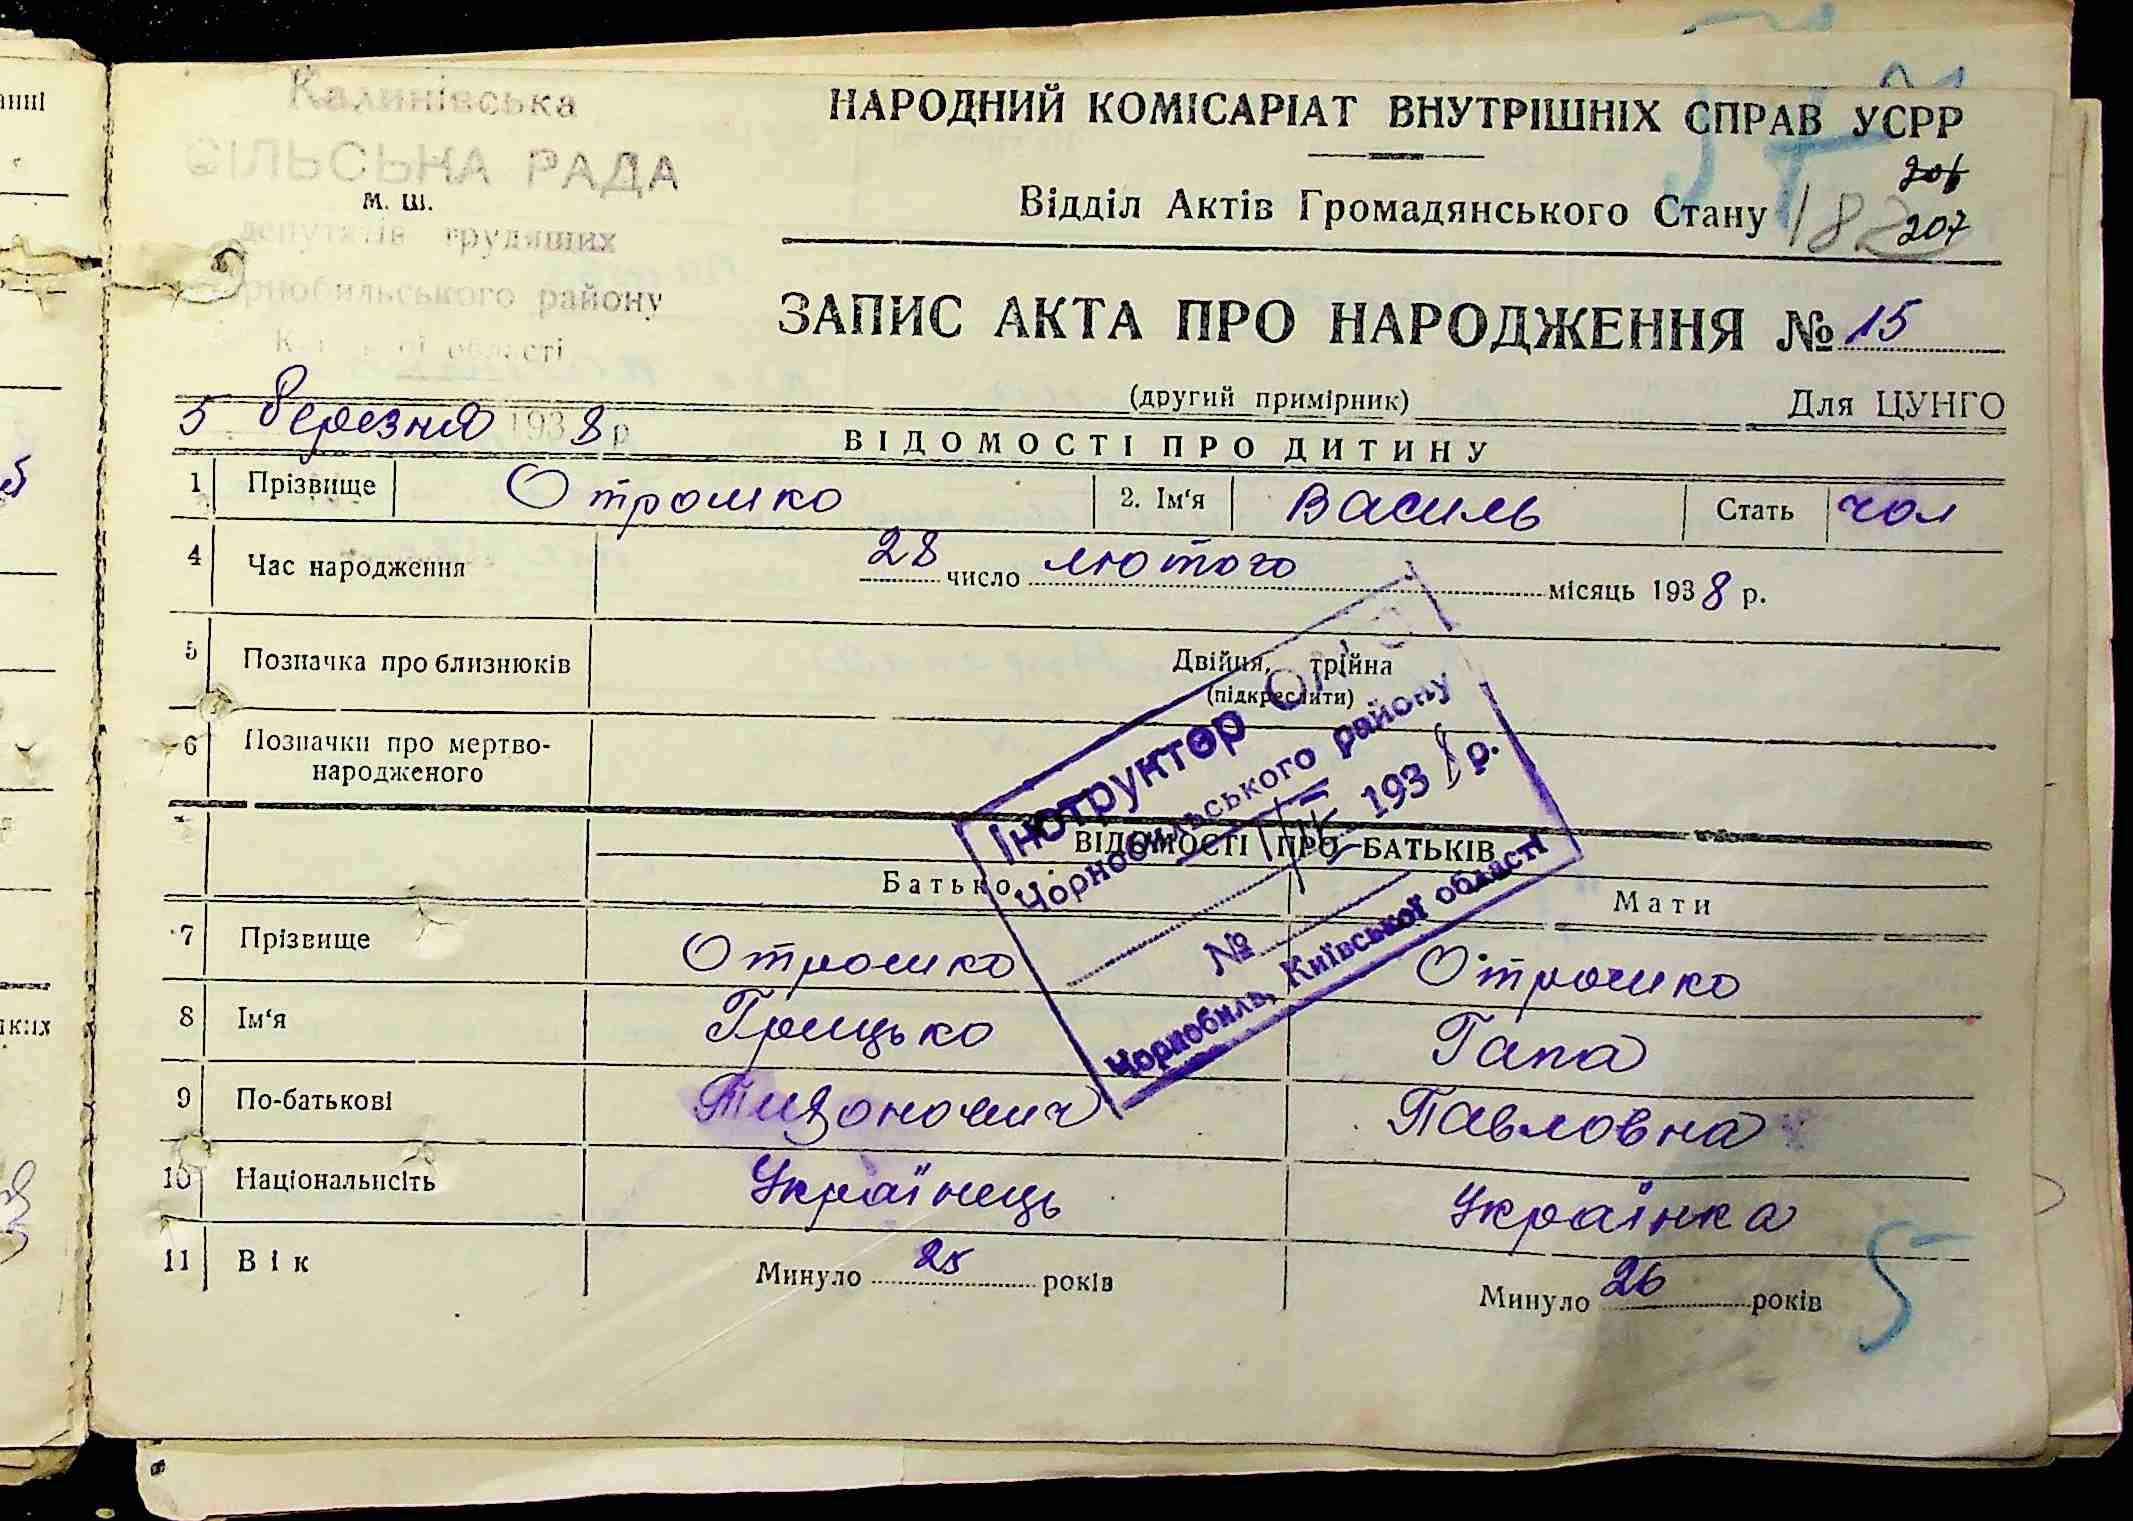 Калинівська
СІЛЬСЬКА РАДА
м. ш.
депутатів трудящих
Чорнобильського району
області
НАРОДНИЙ КОМІСАРІАТ ВНУТРІШНІХ СПРАВ УСРР
Відділ Актів Громадянського Стану
182
206
207
ЗАПИС АКТА ПРО НАРОДЖЕННЯ № 15
(другий примірник)
Для ЦУНГО
5 березня 1938 р
ВІДОМОСТІ ПРО ДИТИНУ
1 Прізвище Отрошко 2. Ім‘я Василь Стать чол
4 Час народження 28 число лютого місяць 1938 р.
5 Позначка про близнюків Двійня, трійна
(підкреслити)
6 Позначки про мертво-
народженого
Інструктор
Чорнобильського району
193 р.
№
Чорнобиль, Київської області
ВІДОМОСТІ ПРО БАТЬКІВ
Батько Мати
7 Прізвище Отрошко Отрошко
8 Ім‘я Грицько Гапа
9 По-батькові Тихонович Павловна
10 Національність Українець Українка
11 Вік Минуло 25 років Минуло 26 років
5